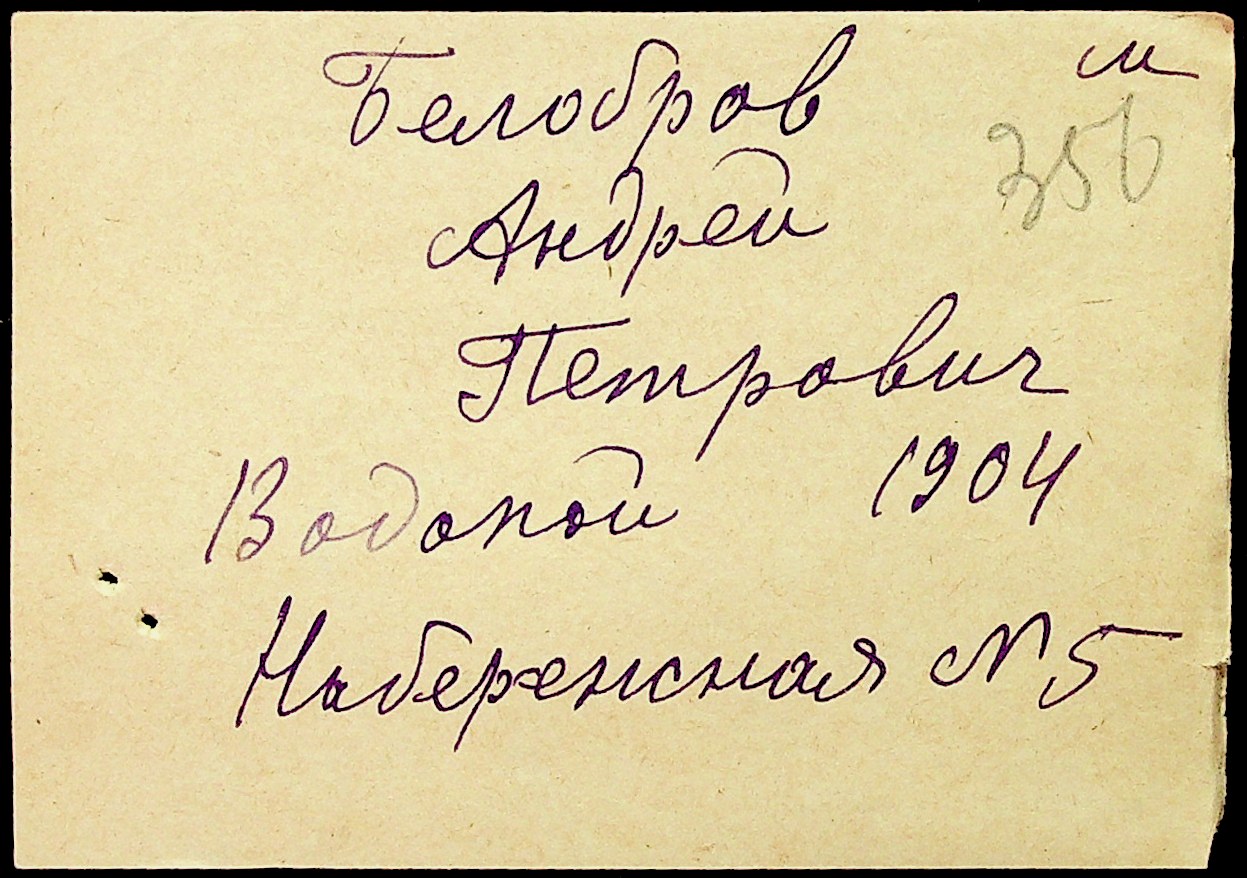 Белобров м
356
Андрей
Петрович
Водопой 1904
Набережная N 5